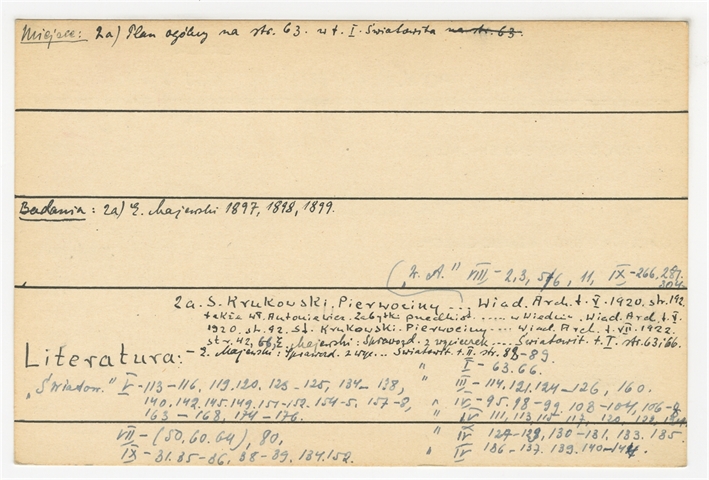 Miejsce: 2a) Plan ogólny na str. 63. w t. I. Światowita na str. 63.
Badania: 2a) E. Majewski 1897, 1898, 1899.
„W. A." VIII - 2, 3, 5/6, 11, IX - 266, 281.
2a. S. Krukowski. Pierwociny ... Wiad. Arch. t. V. 1920. str. 192
także Wł. Antoniewicz. Zabytki przedhist. ..... w Wiedniu. Wiad. Arch. t. V
1920. str. 42. St. Krukowski. Pierwociny ---- Wiad. Arch. t. VII. 1922.
str. 42, E. Majewski: Sprawozd. z wycieczek .... Światowit. t. I. str. 63 i 66.
Literatura: - E. Majewski: Sprawozd. z wyc... Światowit t. II. str. 88-89.
I - 63. 66.
„Światow." V - 113-116, 119, 120, 123-125, 134-138, „ III - 114, 121. 124-126, 160.
140, 142. 145. 149. 151-152. 154-5, 157-8, „ IV - 95. 98-99. 103-104, 106-8
163 - 168, 174-176. „ IV 111, 113, 115-117, 120, 122,
VII - (50, 60. 64), 80, „ IV 127-129, 130-131, 133. 135.
IX - 31. 35-36, 38-39. 134. 152. „ IV 136-137. 139. 140-144.